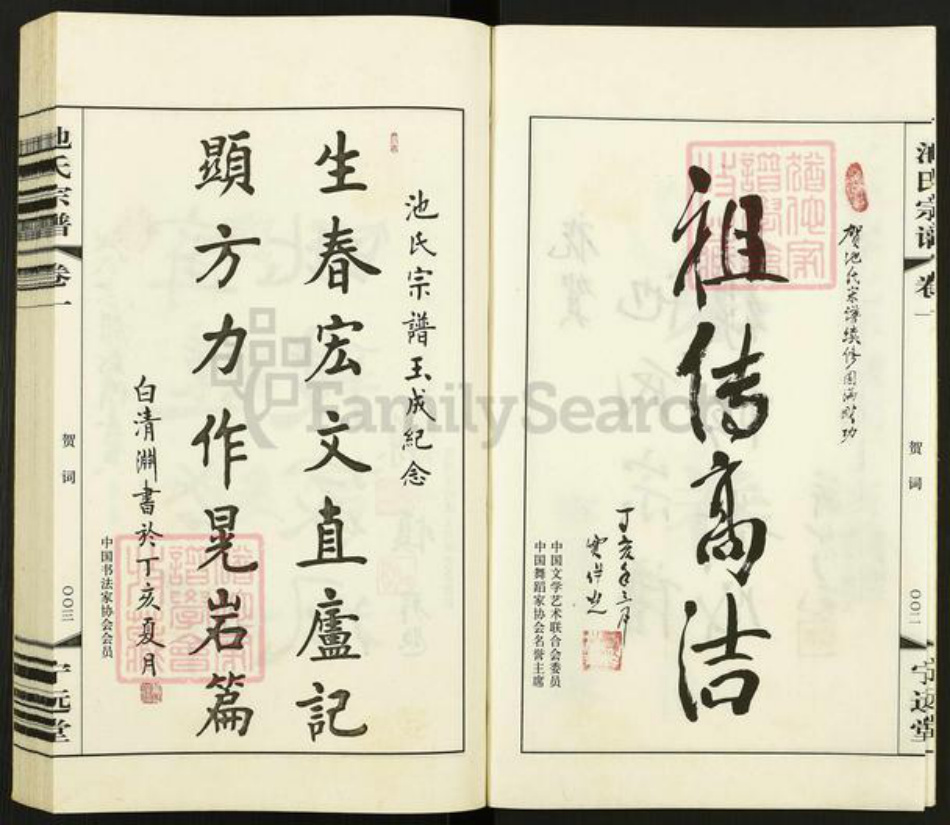 池氏宗谱 卷一
贺词
〇〇二
宁远堂
贺池氏宗谱续修圆满成功
祖传高洁
丁亥年三月
中国文学艺术联合会委员
中国舞蹈家协会名誉主席
池氏宗譜玉成紀念
生春宏文直廬記
顯方力作晃岩篇
白清淵書於丁亥夏月
中国书法家协会会员
池氏宗谱 卷一
贺词
〇〇三
宁远堂
FamilySearch